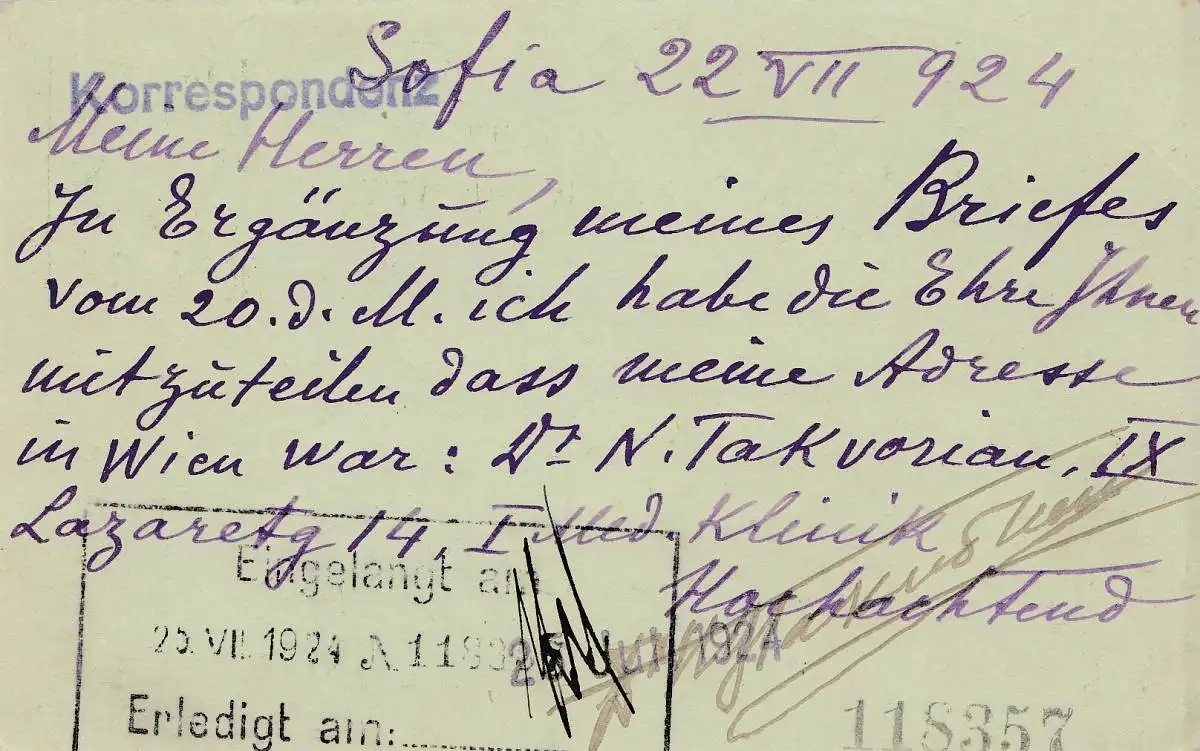 Sofia 22 VII 924
Korrespondenz
Meine Herren,
In Ergänzung meines Briefes
vom 20. d. M. ich habe die Ehre Ihnen
mitzuteilen dass meine Adresse
in Wien war: Dr N. Takvorian, IX
Lazaretg 14, I Med. Klinik
Hochachtend
Eingelangt am
25. VII. 1924
Jul. 1924
Erledigt am:
118357